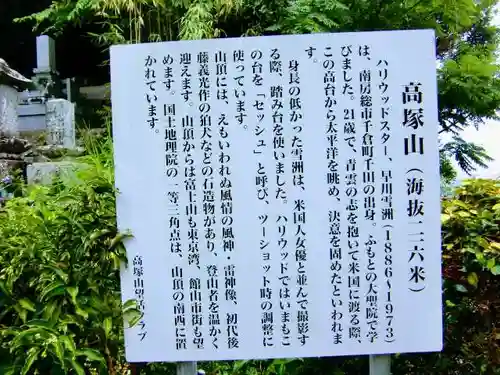 高塚山（海抜二一六米）
ハリウッドスター、早川雪洲（1886～1973）
は、南房総市千倉町千田の出身。ふもとの大聖院で学
びました。21歳で、青雲の志を抱いて米国に渡る際、
この高台から太平洋を眺め、決意を固めたといわれま
す。
身長の低かった雪洲は、米国人女優と並んで撮影す
る際、踏台を使いました。ハリウッドではいまもこ
の台を「セッシュ」と呼び、ツーショット時の調整に
使っています。
山頂には、えもいわれぬ風情の風神・雷神像、初代後
藤義光作の狛犬などの石造物があり、登山者を温かく
迎えます。富士山も東京湾、館山市街も望
めます。国土地理院の一等三角点は、山頂の南西に置
かれています。
高塚山望岳クラブ